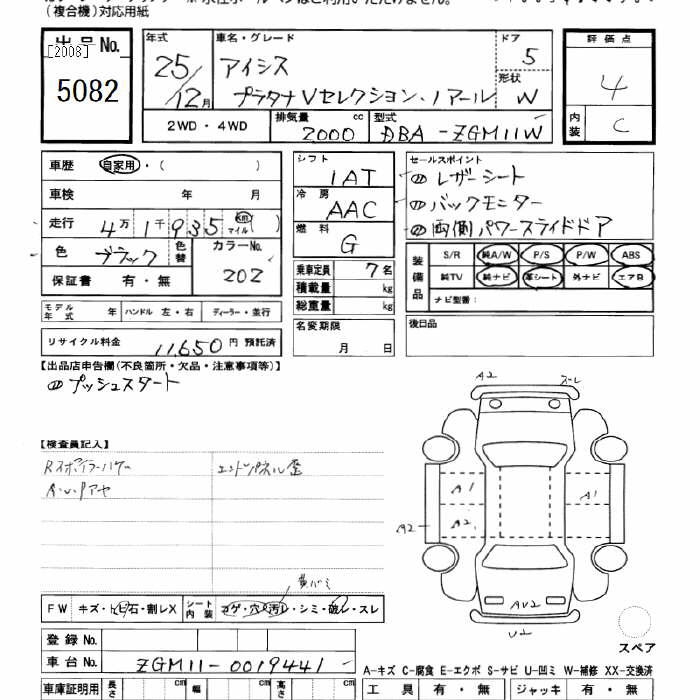 (複合機)対応用紙
出品No.
[2008]
5082
年式
25/12月
車名・グレード
アイシス
プラタナVセレクション・ノアール
ドア
5
形状
W
評価点
4
内装
C
2WD・4WD
排気量 cc
2000
型式
DBA-ZGM11W
車歴 自家用・( )
車検 年 月
走行 4万1千935 km マイル ( )
色 ブラック 色替 カラーNo. 202
保証書 有・無
モデル年式 年 ハンドル 左・右 ディーラー・並行
リサイクル料金 11,650 円 預託済
シフト
1AT
冷房
AAC
燃料
G
乗車定員 7名
積載量 kg
総重量 kg
名変期限
月 日
セールスポイント
① レザーシート
① バックモニター
① 両側パワースライドドア
装備品
S/R 純A/W P/S P/W ABS
純TV 純ナビ 革シート 外ナビ エアB
ナビ型番:
後日品
【出品店申告欄(不良箇所・欠品・注意事項等)】
① プッシュスタート
【検査員記入】
エンドパネル歪
FW キズ・トビ石・割レX
シート内装 コゲ・穴・汚レ・シミ・破レ・スレ
黄バミ
登録No.
車台No. ZGM11-0019441
車庫証明用 長さ cm 幅 cm 高さ cm
A2
スレ
A1
A1
A2
A2
AU2
U2
スペア
A-キズ C-腐食 E-エクボ S-サビ U-凹ミ W-補修 XX-交換済
工具 有・無 ジャッキ 有・無